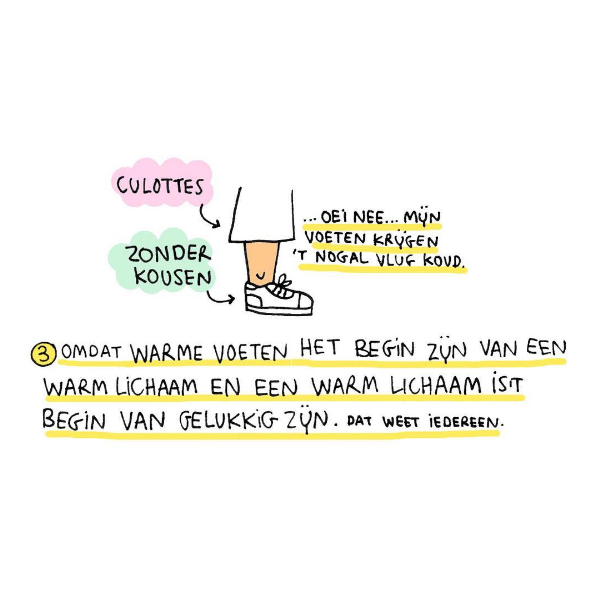 CULOTTES
... OEI NEE... MIJN
VOETEN KRIJGEN
'T NOGAL VLUG KOUD.
ZONDER
KOUSEN
3 OMDAT WARME VOETEN HET BEGIN ZIJN VAN EEN
WARM LICHAAM EN EEN WARM LICHAAM IS 'T
BEGIN VAN GELUKKIG ZIJN. DAT WEET IEDEREEN.